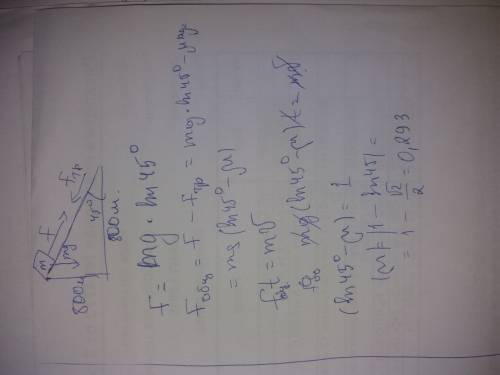 m
F
mg
Fтр
45°
800м
800м.
F = mg · sin45°
Fобщ = F − Fтр = mg · sin45° − μmg
= mg (sin45° − μ)
Fобщt = mv
mg (sin45° − μ) t = mv
(sin45° − μ) = 1
|μ| = |1 − sin45| =
= 1 − √2/2 = 0,293